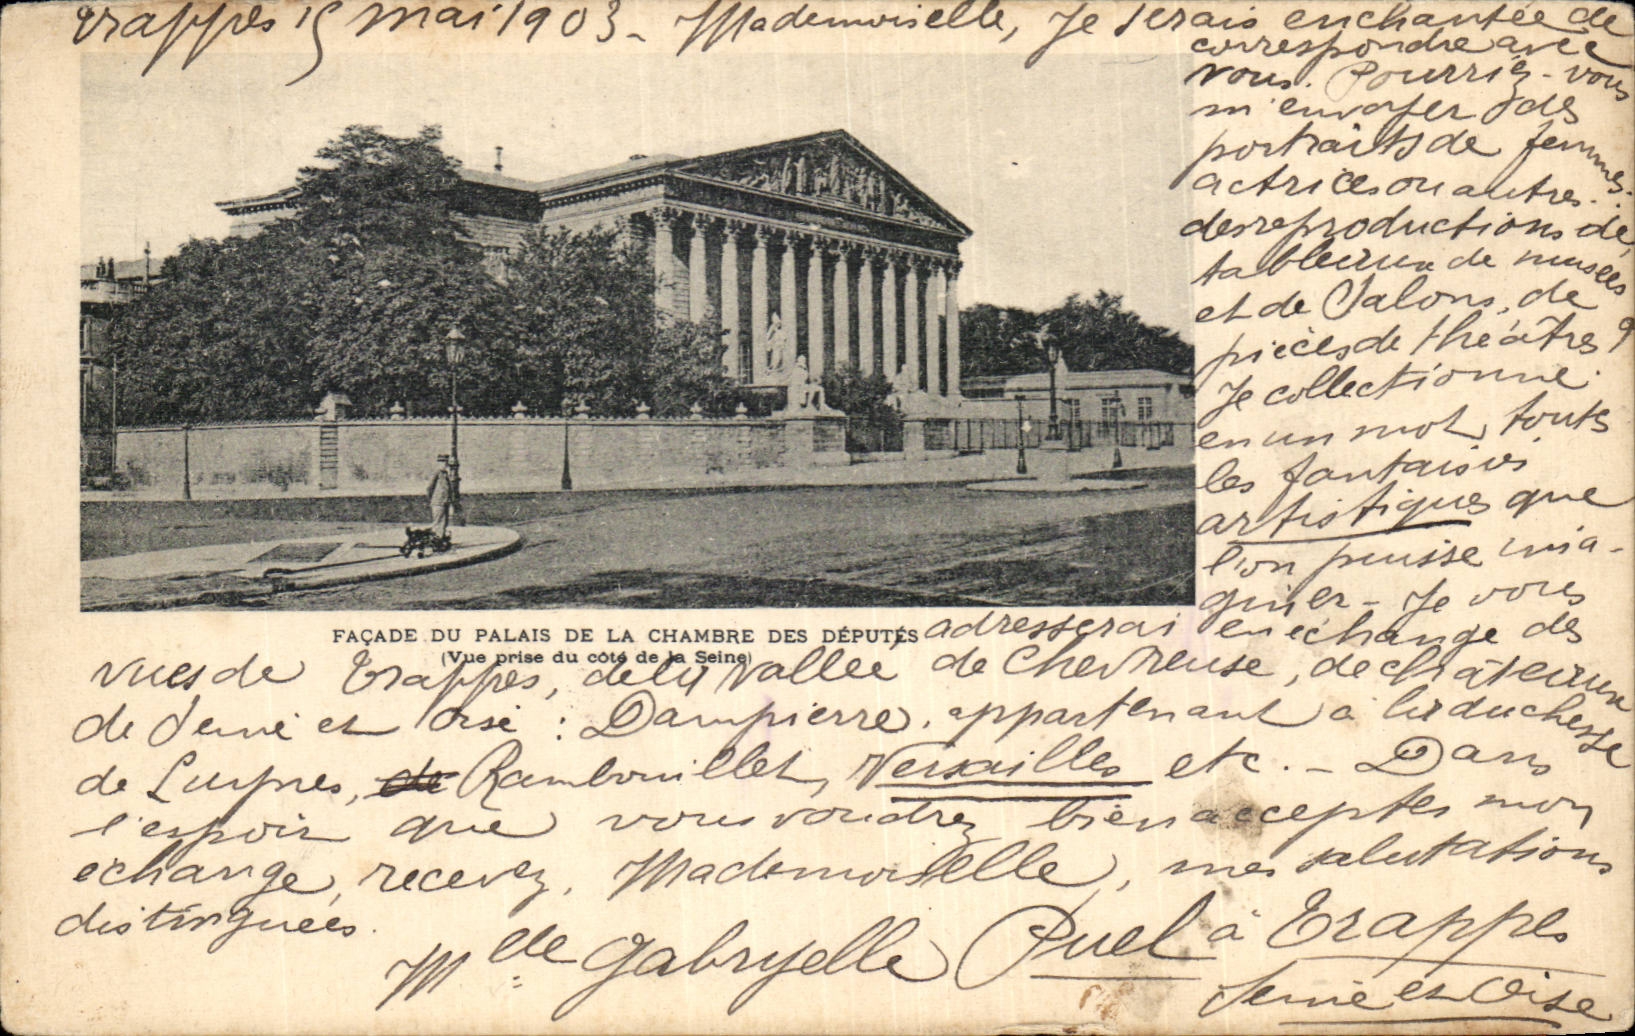 Trappes 15 mai 1903_ Mademoiselle, Je serais enchantée de
correspondre avec
vous. Pourriez-vous
m'envoyer des
portraits de femmes:
actrices ou autres.
des reproductions de
tableaux de musées
et de Salons, de
pièces de théâtres?
Je collectionne
en un mot, toutes
les fantaisies
artistiques que
l'on puisse ima-
giner - Je vous
FAÇADE DU PALAIS DE LA CHAMBRE DES DÉPUTÉS
(Vue prise du côté de la Seine)
adresserai en échange des
vues de Trappes, de la Vallée de Chevreuse, de châteaux
de Seine et Oise: Dampierre, appartenant à la duchesse
de Luynes, de Rambouillet, Versailles etc. - Dans
l'espoir que vous voudrez bien accepter mon
échange, recevez, Mademoiselle, mes salutations
distinguées.
Mdelle Gabryelle Puel à Trappes
Seine et Oise